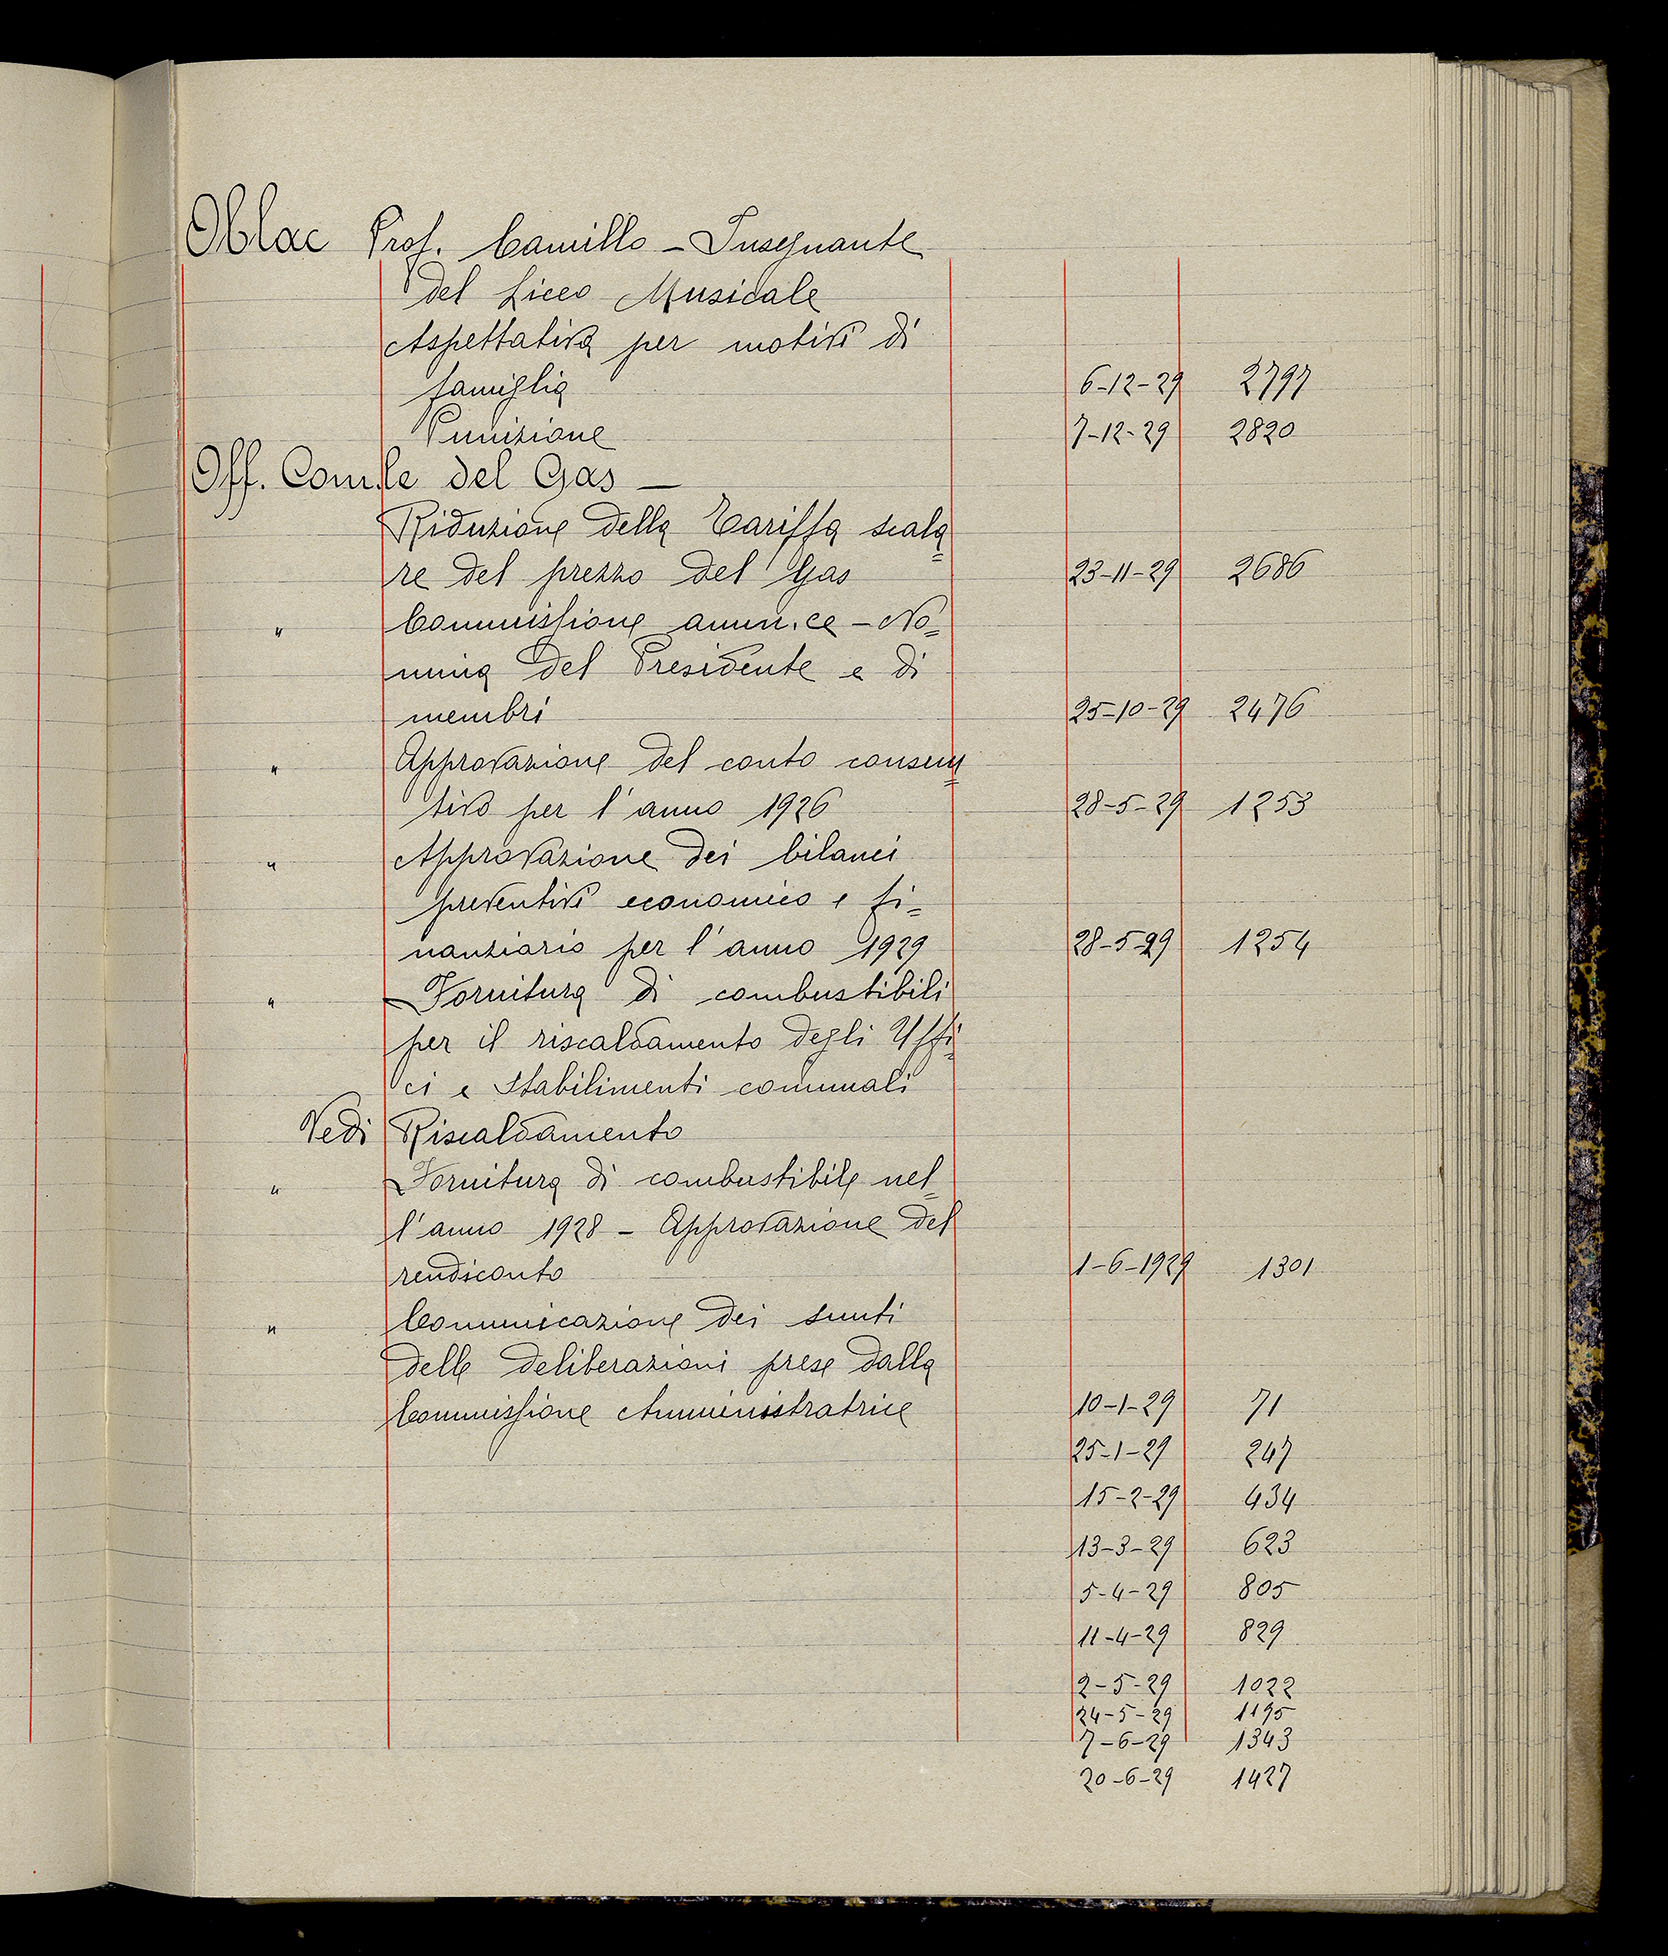 Oblac Prof. Camillo - Insegnante
del Liceo Musicale
Aspettativa per motivi di
famiglia 6-12-29 2797
Punizione 7-12-29 2820
Off. Com.le del Gas -
Riduzione della Tariffa scala=
re del prezzo del Gas 23-11-29 2686
" Commissione amm.ce - No=
mina del Presidente e di
membri 25-10-29 2476
" Approvazione del conto consun=
tivo per l'anno 1926 28-5-29 1253
" Approvazione dei bilanci
preventivi economico e fi=
nanziario per l'anno 1929 28-5-29 1254
" Fornitura di combustibili
per il riscaldamento degli Uffi=
ci e Stabilimenti comunali
Vedi Riscaldamento
" Fornitura di combustibile nel=
l'anno 1928 - Approvazione del
rendiconto 1-6-1929 1301
" Comunicazione dei sunti
delle deliberazioni prese dalla
Commissione Amministratrice 10-1-29 71
25-1-29 247
15-2-29 434
13-3-29 623
5-4-29 805
11-4-29 829
2-5-29 1022
24-5-29 1195
7-6-29 1343
20-6-29 1427